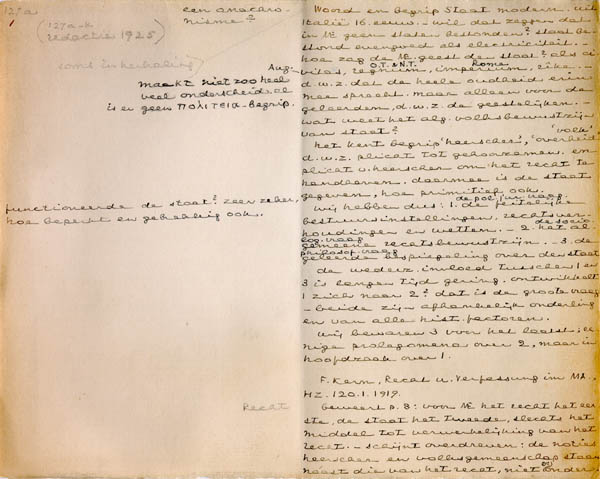 127a
(127a-k
redactie 1925)
soms in herhaling
een anachro-
nisme?
Aug.
maakt niet zoo heel
veel onderscheid, al
is er geen Πολιτεια-begrip.
functioneerde de staat? zeer zeker,
hoe beperkt en gebrekkig ook.
Recht
Woord en begrip Staat modern. uit
Italië 16. eeuw. - wil dat zeggen dat
in ME geen staten bestonden? staat be-
stond evengoed als electriciteit. -
hoe zag de ME. geest de staat? als ci-
O.T. & N.T. Rome
vitas, regnum, imperium, rike. -
d.w.z. dat de heele oudheid erin
mee spreekt. maar alleen voor de
geleerden, d.w.z. de geestelijken. -
wat weet het alg. volksbewustzijn
van staat?
'volk'
het kent begrip 'heerscher', 'overheid'
d.w.z. plicht tot gehoorzamen. en
plicht v. heerscher om het recht te
handhaven. daarmee is de staat
gegeven, hoe primitief ook.
de pol. jur. vraag
wij hebben dus: 1. de feitelijke
bestuursinstellingen, rechtsver-
de sociolog. vraag
houdingen en wetten. - 2. het al-
gemeene rechtsbewustzijn. - 3. de
philosof. vraag
geleerde bespiegeling over den staat
de wederz. invloed tusschen 1 en
3 is langen tijd gering. ontwikkelt
1 zich naar 2? dat is de groote vraag
- beide zijn afhankelijk onderling
en van alle hist. factoren.
wij bewaren 3 voor het laatst, ee-
nige prolegomena over 2, maar in
hoofdzaak over 1.
F. Kern, Recht u. Verfassung im MA.,
HZ. 120. 1. 1919.
beweert p. 3: voor ME het recht het eer-
ste, de staat het tweede, slechts het
middel tot verwerkelijking van het
recht. - schijnt overdreven: de noties
heerscher en volksgemeenschap staan
naast die van het recht, niet onder,